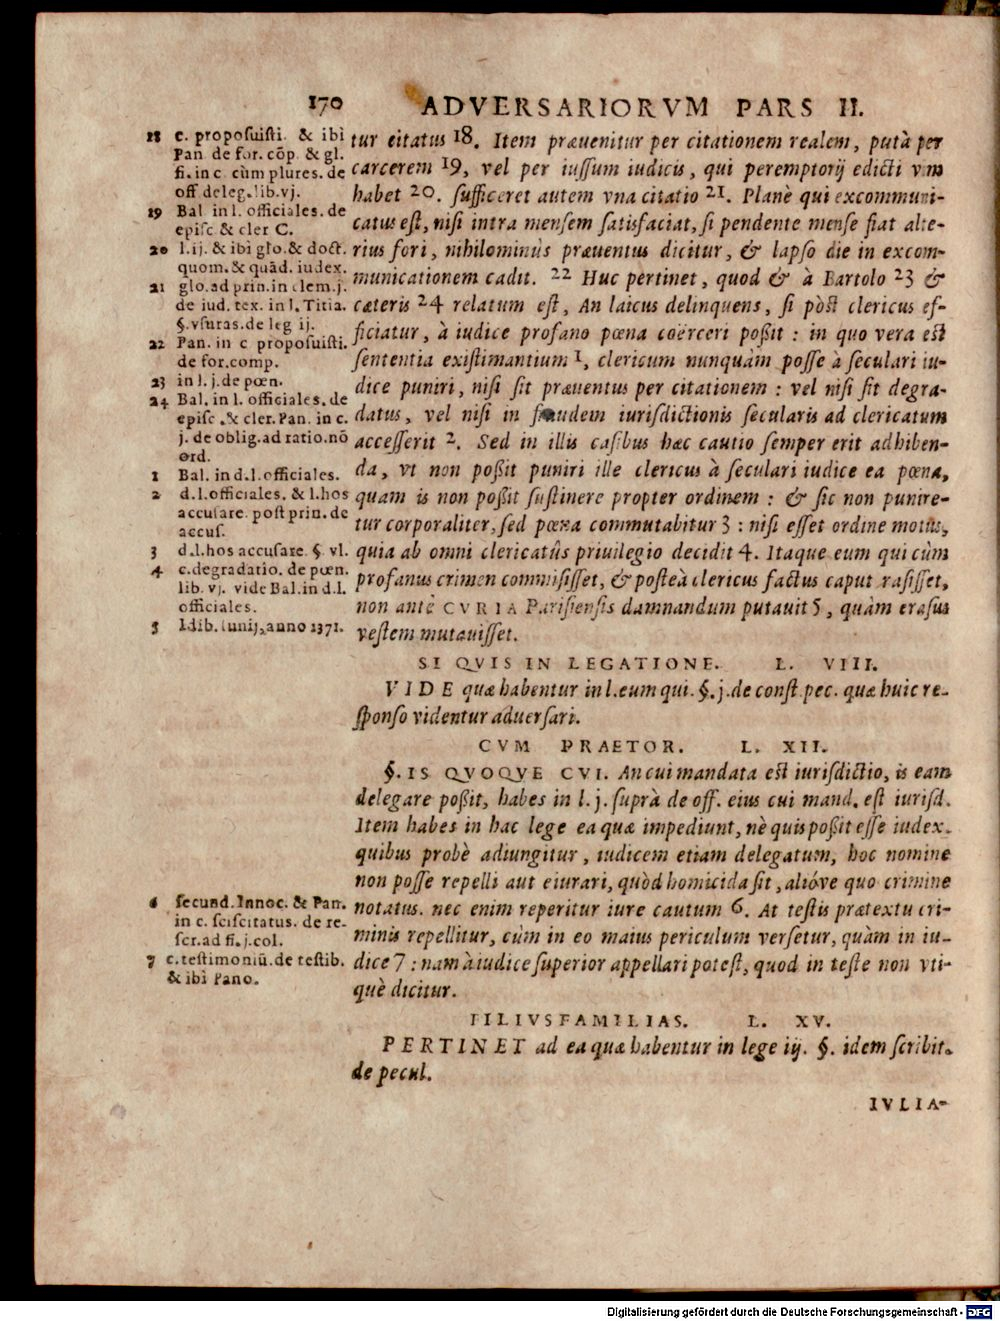 170 ADVERSARIORVM PARS II.
18 c. proposuisti. & ibi
Pan. de for. cōp. & gl.
fi. in c. cùm plures. de
off. deleg. lib. vj.
19 Bal. in l. officiales. de
episc. & cler C.
20 l. ij. & ibi glo. & doct.
quom. & quād. iudex.
21 glo. ad prin. in clem. j.
de iud. tex. in l. Titia.
§. vsuras. de leg ij.
22 Pan. in c proposuisti.
de for. comp.
23 in l. j. de pœn.
24 Bal. in l. officiales. de
episc. & cler. Pan. in c.
j. de oblig. ad ratio. nō
ord.
1 Bal. in d. l. officiales.
2 d. l. officiales. & l. hos
accusare. post prin. de
accus.
3 d. l. hos accusare. §. vl.
4 c. degradatio. de pœn.
lib. vj. vide Bal. in d. l.
officiales.
5 Idib. Iunij, anno 1371.
6 secund. Innoc. & Pan.
in c. sciscitatus. de re-
scr. ad fi. j. col.
7 c. testimoniū. de testib.
& ibi Pano.
tur citatus 18. Item præuenitur per citationem realem, putà per
carcerem 19, vel per iussum iudicis, qui peremptorij edicti vim
habet 20. sufficeret autem vna citatio 21. Planè qui excommuni-
catus est, nisi intra mensem satisfaciat, si pendente mense fiat alte-
rius fori, nihilominùs præuentus dicitur, & lapso die in excom-
municationem cadit. 22 Huc pertinet, quod & à Bartolo 23 &
cæteris 24 relatum est, An laicus delinquens, si pòst clericus ef-
ficiatur, à iudice profano pœna coërceri poßit : in quo vera est
sententia existimantium 1, clericum nunquàm posse à seculari iu-
dice puniri, nisi sit præuentus per citationem : vel nisi sit degra-
datus, vel nisi in fraudem iurisdictionis secularis ad clericatum
accesserit 2. Sed in illis casibus hæc cautio semper erit adhiben-
da, vt non poßit puniri ille clericus à seculari iudice ea pœna,
quam is non poßit sustinere propter ordinem : & sic non punire-
tur corporaliter, sed pœna commutabitur 3 : nisi esset ordine motus,
quia ab omni clericatûs priuilegio decidit 4. Itaque eum qui cùm
profanus crimen commisisset, & posteà clericus factus caput rasisset,
non antè CVRIA Parisiensis damnandum putauit 5, quàm erasus
vestem mutauisset.
SI QVIS IN LEGATIONE. L. VIII.
VIDE quæ habentur in l. eum qui. §. j. de const. pec. quæ huic re-
sponso videntur aduersari.
CVM PRAETOR. L. XII.
§. IS QVOQVE CVI. An cui mandata est iurisdictio, is eam
delegare poßit, habes in l. j. suprà de off. eius cui mand. est iurisd.
Item habes in hac lege ea quæ impediunt, nè quis poßit esse iudex.
quibus probè adiungitur, iudicem etiam delegatum, hoc nomine
non posse repelli aut eiurari, quòd homicida sit, alióve quo crimine
notatus. nec enim reperitur iure cautum 6. At testis prætextu cri-
minis repellitur, cùm in eo maius periculum versetur, quàm in iu-
dice 7 : nam à iudice superior appellari potest, quod in teste non vti-
què dicitur.
FILIVSFAMILIAS. L. XV.
PERTINET ad ea quæ habentur in lege iij. §. idem scribit.
de pecul.
IVLIA-
Digitalisierung gefördert durch die Deutsche Forschungsgemeinschaft - DFG